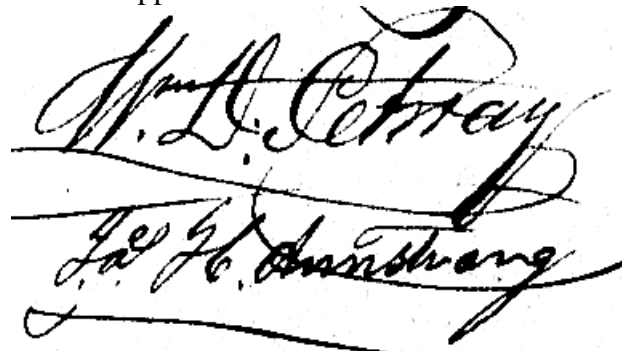 Wm. D. Petway
Jas H. Armstrong